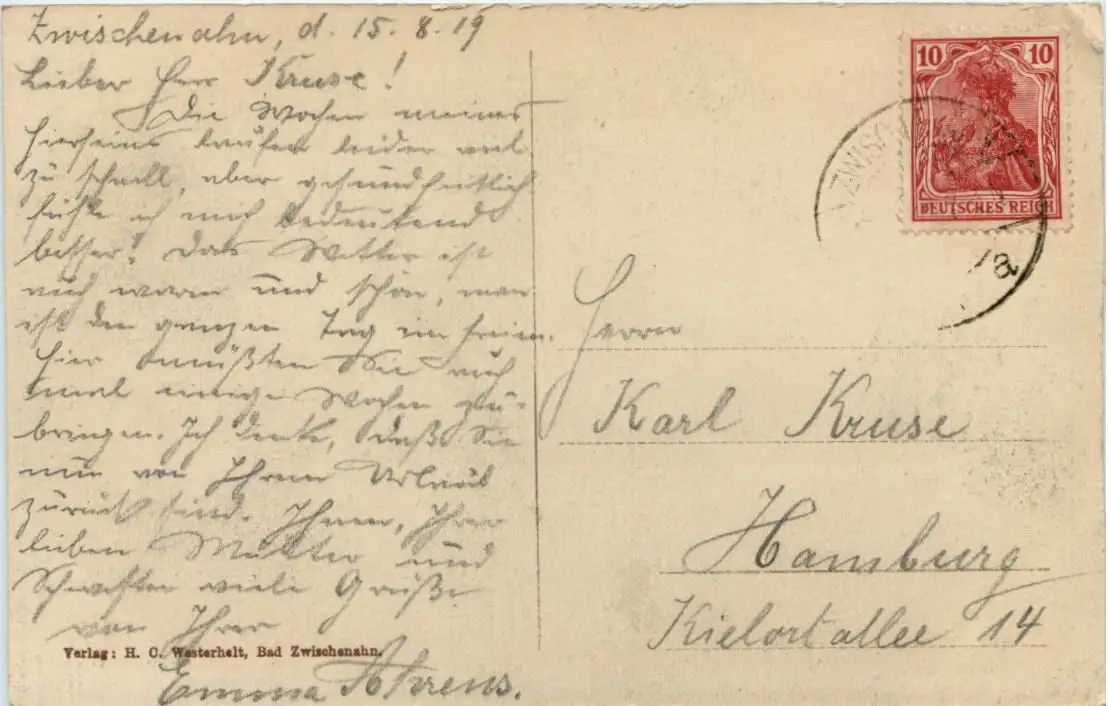 Zwischenahn, d. 15.8.19
Lieber Herr Kruse!
Die Wochen meines
Hierseins laufen leider viel
zu schnell, aber gesundheitlich
fühle ich mich bedeutend
besser! Das Wetter ist
auch warm und schön, man
ist den ganzen Tag im Freien.
Hier müßten Sie auch
mal einige Wochen zu-
bringen. Ich denke, daß Sie
nun von Ihrem Urlaub
zurück sind. Ihnen, Ihrer
lieben Mutter und
Schwester viele Grüße
von Ihrer
Emma Ahrens.
Verlag: H. C. Westerhelt, Bad Zwischenahn.
10 10
DEUTSCHES REICH
ZWISCH
a
Herrn
Karl Kruse
Hamburg
Kielortallee 14